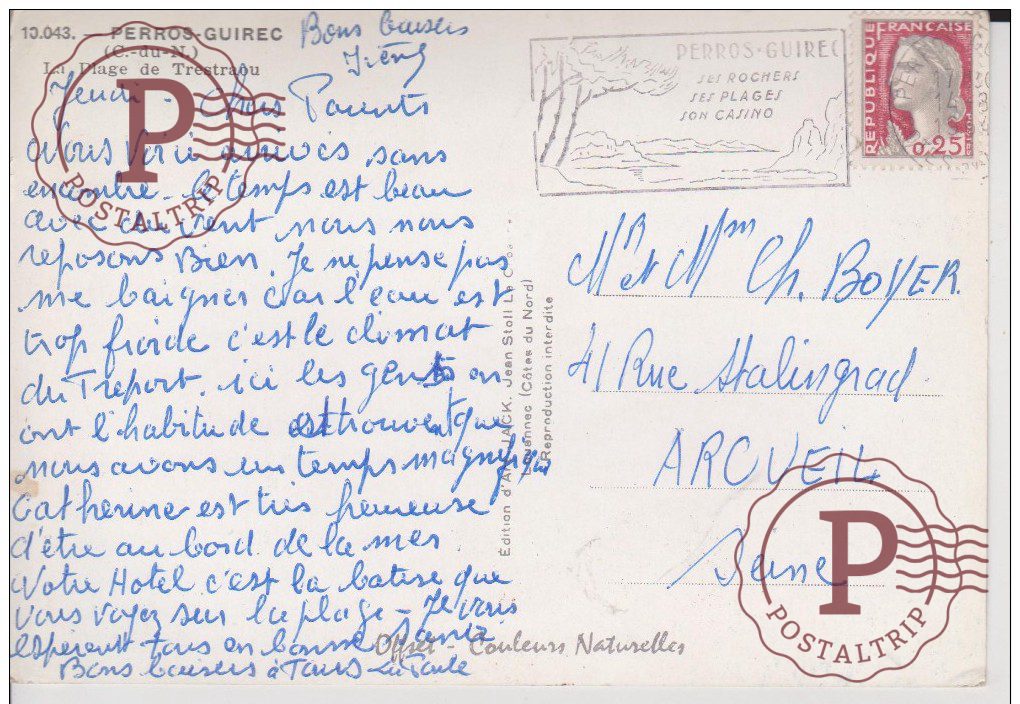 10.043. — PERROS-GUIREC
(C.-du-N.)
La Plage de Trestraou
Bons baisers
Jeudi - Chers Parents
sans
encombre - le temps est beau
avec du vent nous nous
reposons Bien. Je ne pense pas
me baigner car l'eau est
trop froide c'est le climat
du Treport. ici les gens en
ont l'habitude et trouvent que
nous avons un temps magnifique
Catherine est très heureuse
d'être au bord de la mer
Votre Hotel c'est la batise que
vous voyez sur la plage - Je vous
esperent tous en bonne santé
Bons baisers à Tous
Édition d'Art JACK, Jean Stoll
Louannec (Côtes du Nord)
Reproduction interdite
Offset - Couleurs Naturelles
PERROS-GUIREC
SES ROCHERS
SES PLAGES
SON CASINO
REPUBLIQUE FRANCAISE
0,25
POSTES
Mr et Mme Ch. BOYER
41 Rue Stalingrad
ARCUEIL
Seine
P
POSTALTRIP
P
POSTALTRIP